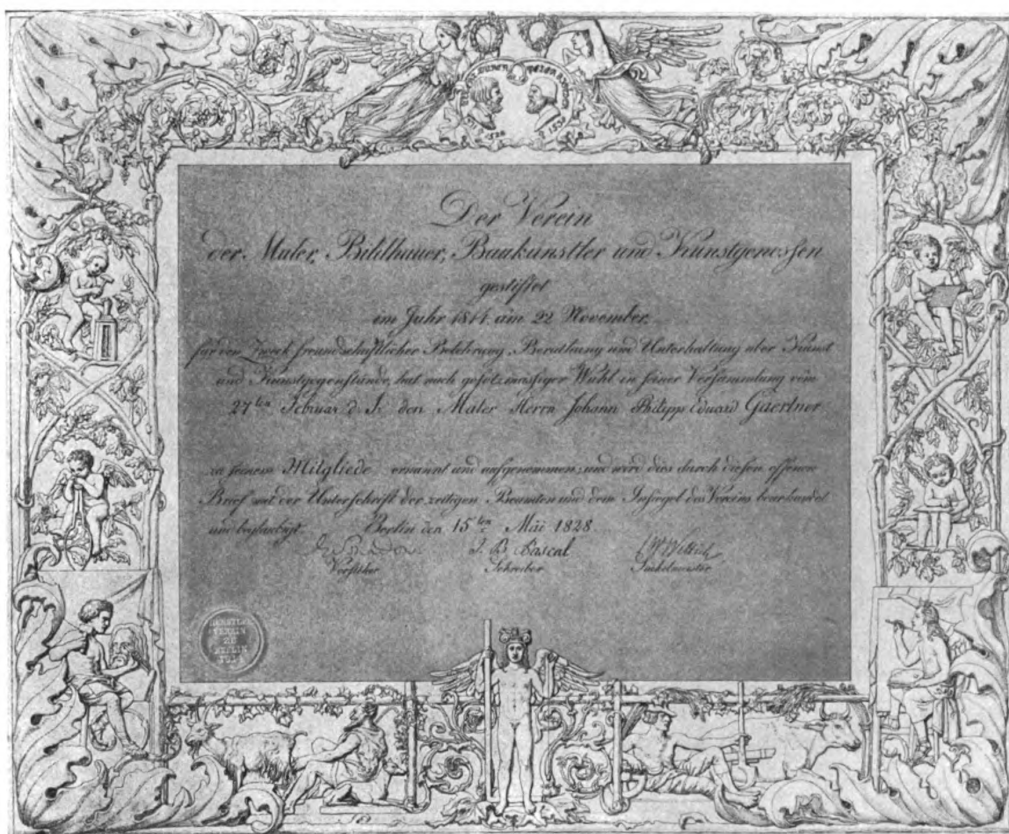 Der Verein
der Maler, Bildhauer, Baukünstler und Kunstgenossen
gestiftet
im Jahr 1814 am 22 November,
für den Zweck freundschaftlicher Belehrung, Berathung und Unterhaltung über Kunst
und Kunstgegenstände, hat nach gesetzmässiger Wahl in seiner Versammlung vom
27ten Februar d. J. den Maler Herrn Johann Philipp Eduard Gaertner
zu seinem Mitgliede ernannt und aufgenommen, und wird dies durch diesen offenen
Brief mit der Unterschrift der zeitigen Beamten und dem Insiegel des Vereins beurkundet
und beglaubigt. Berlin den 15ten Mai 1828.
J. B. Pascal
Vorsitzer Schreiber Seckelmeister
KÜNSTLER
VEREIN
ZU
BERLIN